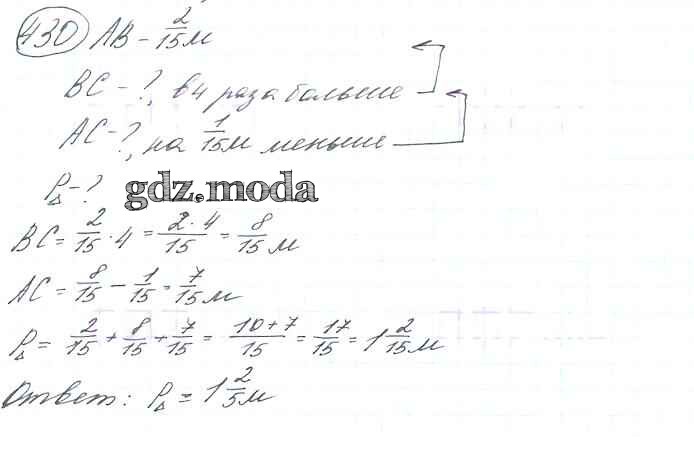 430 АВ – 2/15 м
ВС – ?, в 4 раза больше
АС – ?, на 1/15 м меньше
P△ – ?
gdz.moda
ВС = 2/15 · 4 = 2·4/15 = 8/15 м
АС = 8/15 – 1/15 = 7/15 м
P△ = 2/15 + 8/15 + 7/15 = 10+7/15 = 17/15 = 1 2/15 м
Ответ: P△ = 1 2/5 м